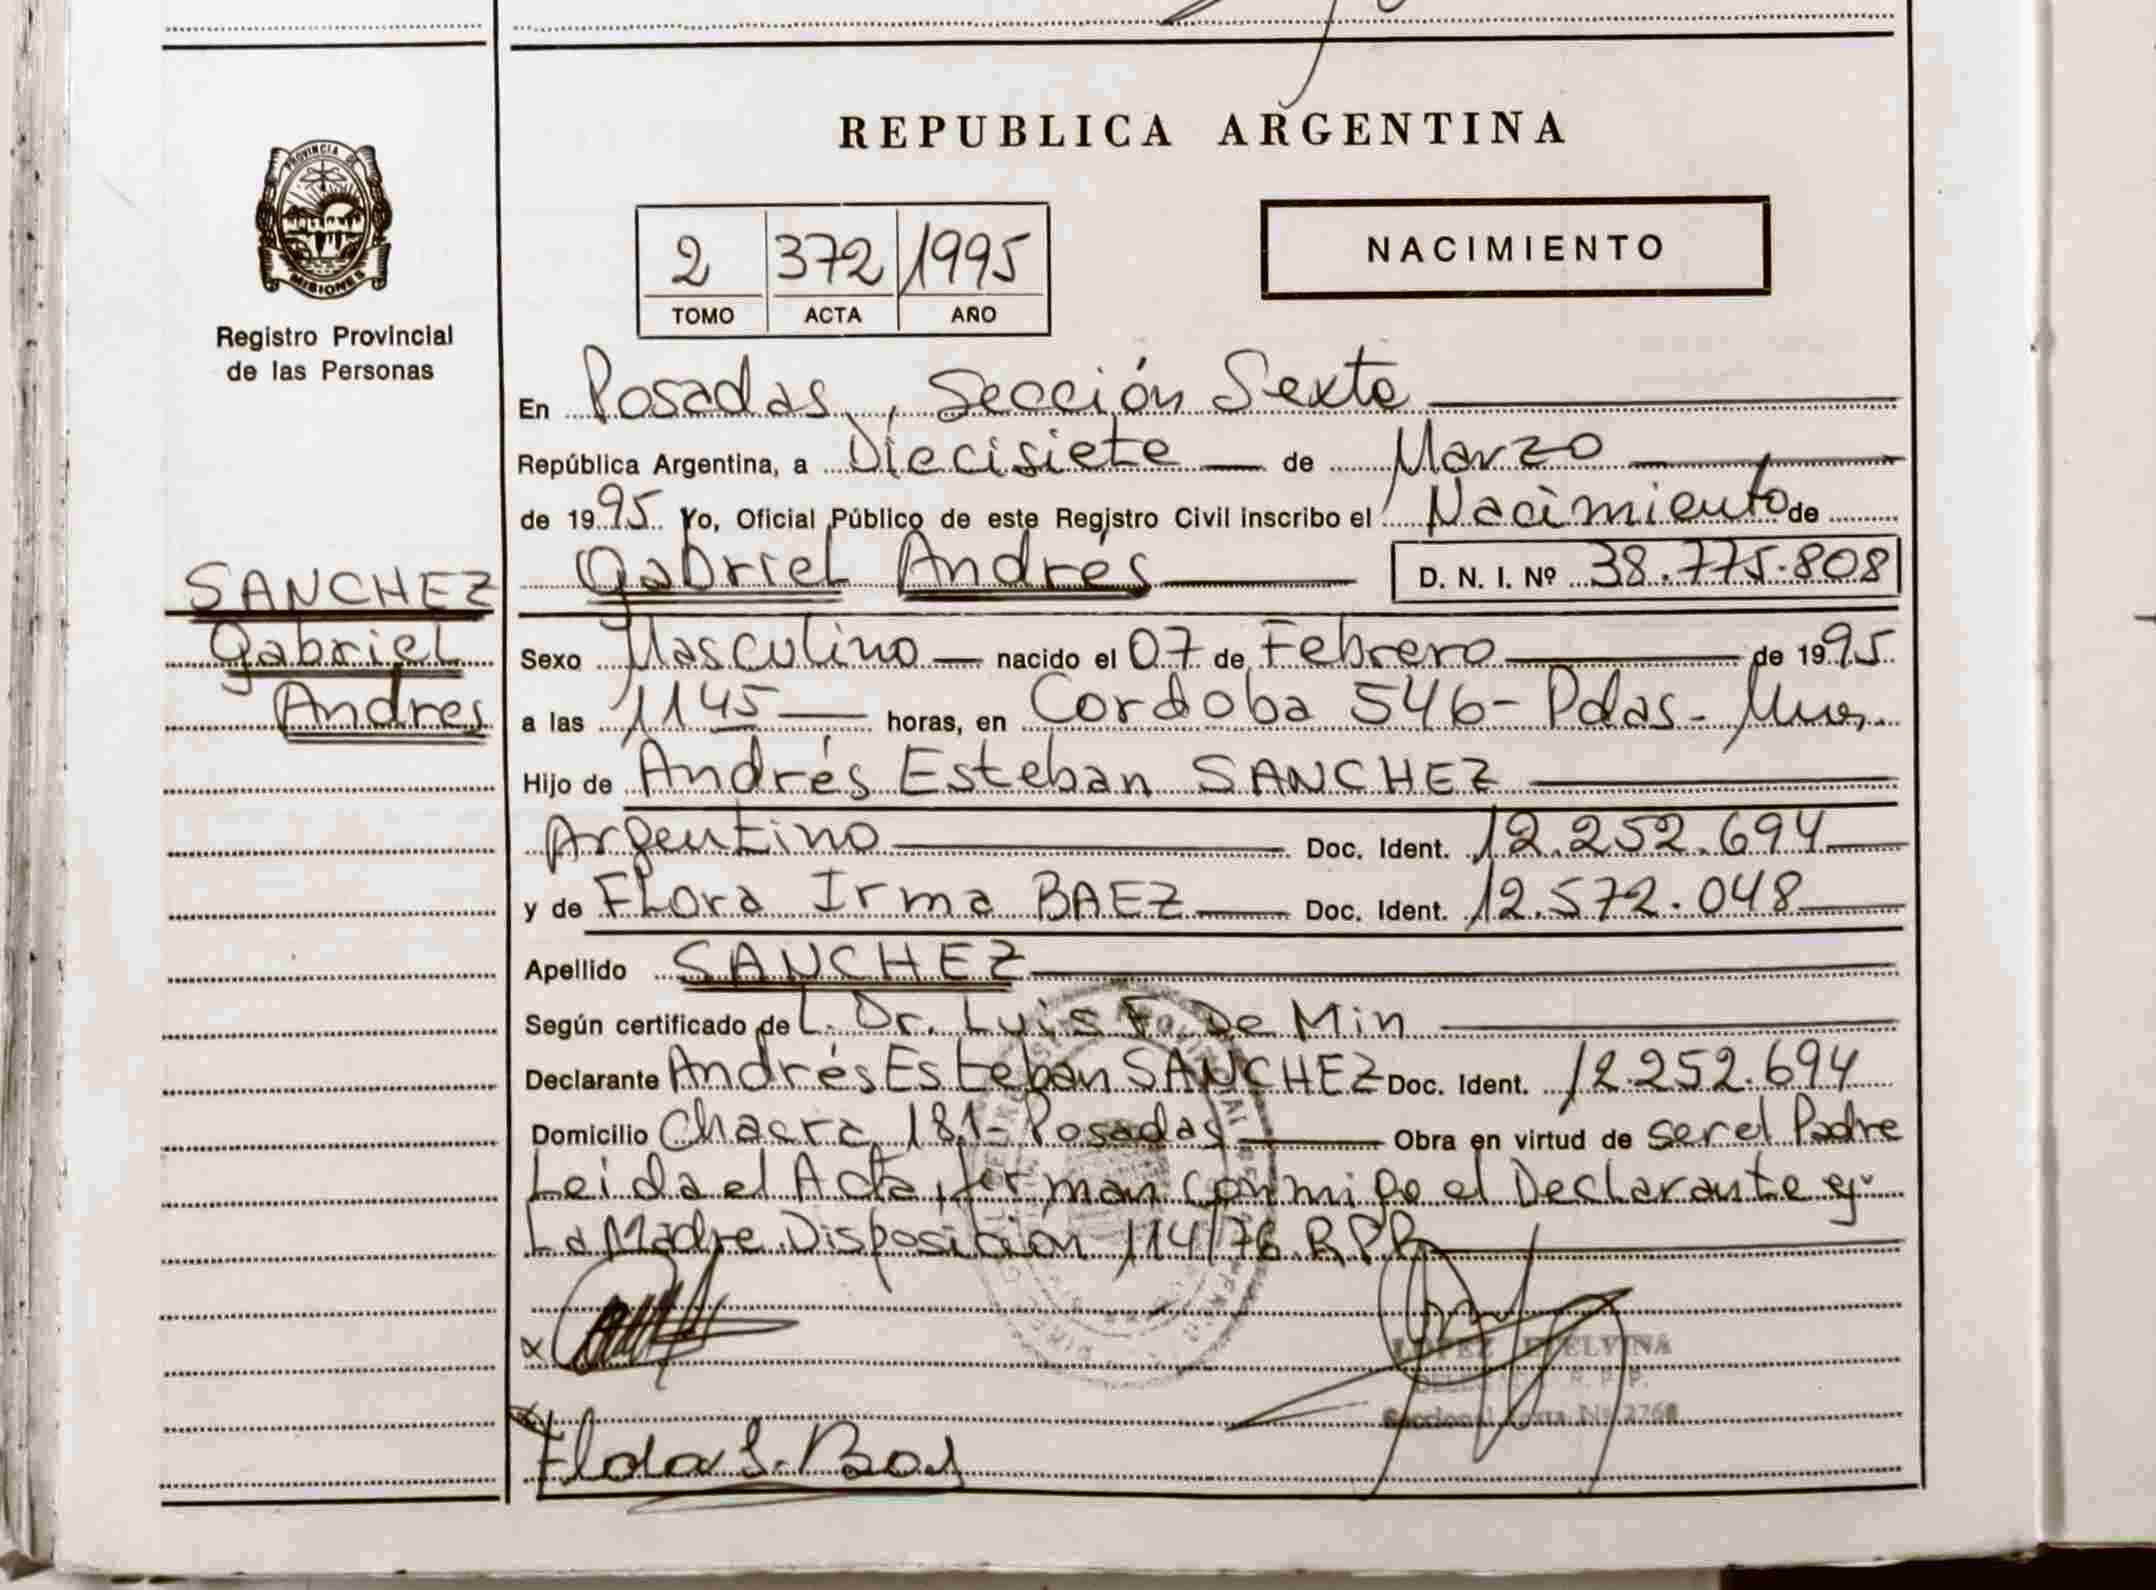 REPUBLICA ARGENTINA
PROVINCIA DE
MISIONES
Registro Provincial
de las Personas
2 372 1995
TOMO ACTA AÑO
NACIMIENTO
En Posadas, Sección Sexta
República Argentina, a Diecisiete de Marzo
de 1995 Yo, Oficial Público de este Registro Civil inscribo el Nacimiento de
Gabriel Andrés D. N. I. Nº 38.775.808
SANCHEZ
Gabriel
Andres
Sexo Masculino nacido el 07 de Febrero de 1995
a las 1145 horas, en Cordoba 546- Pdas- Mnes.
Hijo de Andrés Esteban SANCHEZ
Argentino Doc. Ident. 12.252.694
y de Flora Irma BAEZ Doc. Ident. 12.572.048
Apellido SANCHEZ
Según certificado de L. Dr. Luis F. De Min
Declarante Andrés Esteban SANCHEZ Doc. Ident. 12.252.694
Domicilio Chacra 181- Posadas Obra en virtud de ser el Padre
Leida el Acta, firman conmigo el Declarante y
La Madre. Disposición 114/76 R.P.P.
LOPEZ ETELVINA
R. P. P.
Seccional Sexta Nº 2768